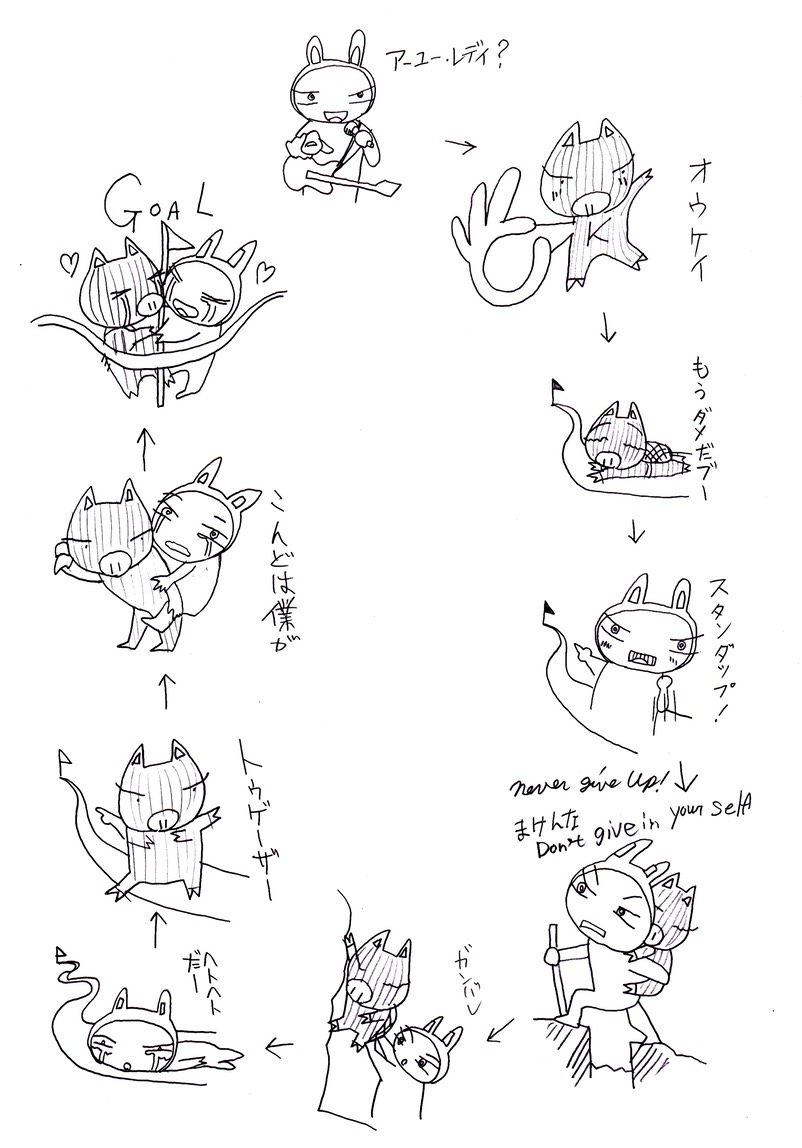 アーユー・レディ?
オウケイ
K
もうダメだブー
スタンダップ!
never give up!
まけんな
Don't give in your self
ガンバレ
ヘトヘト
だー
トゥゲーザー
こんどは僕が
GOAL